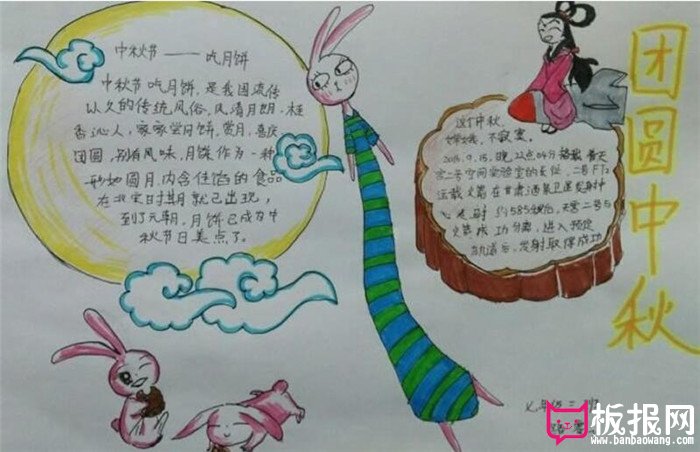 中秋节——吃月饼
中秋节吃月饼,是我国流传
以久的传统风俗,风清月朗,桂
香沁人,家家尝月饼,赏月,喜庆
团圆,别有风味,月饼作为一种
形如圆月,内含佳馅的食品
在北宋时期就已出现,
到了元朝,月饼已成为中
秋节日美点了。
这个中秋,
嫦娥,不寂寞。
2016.9.15.晚22点04分
宫二号空间实验室的长征二号FT2
运载火箭在甘肃酒泉卫星发射中
585秒后,天宫二号与
火箭成功分离,进入预定
轨道后,发射取得成功
团圆中秋
年级二班
板报网
www.banbaowang.com